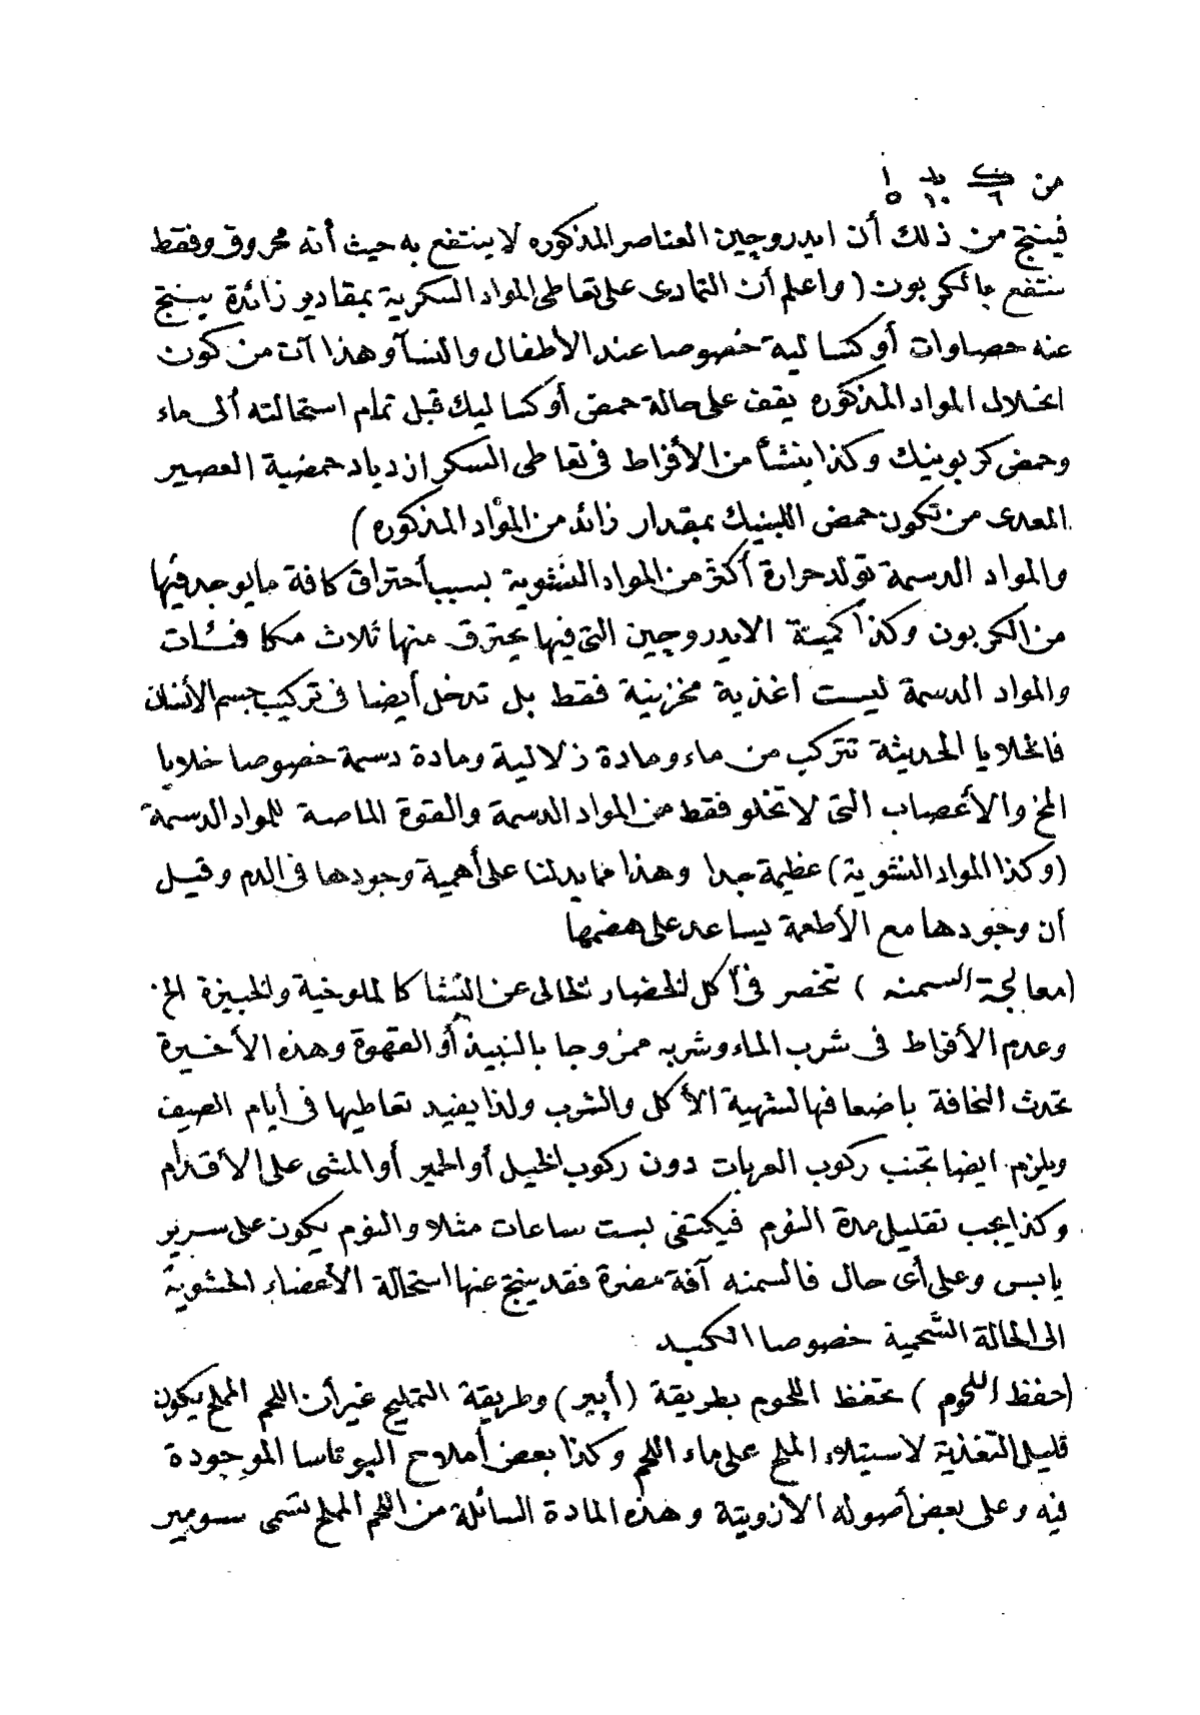 من ك٦ يد١٠ ا٥
فينتج من ذلك أن ايدروچين العناصر المذكوره لا ينتفع به حيث أنه محروق وفقط
ننتفع بالكربون (واعلم أن التمادى على تعاطى المواد السكرية بمقادير زائدة ينتج
عنه حصاوات أوكساليه خصوصا عند الأطفال والنسآ وهذا آت من كون
انحلال المواد المذكوره يقف على حالة حمض أوكساليك قبل تمام استحالته ألى ماء
وحمض كربونيك وكذا ينشأ من الأفراط فى تعاطى السكر ازدياد حمضية العصير
المعدى من تكون حمض اللبنيك بمقدار زائد من المواد المذكوره)
والمواد الدسمة تولد حرارة أكثر من المواد النشوية بسبب أحتراق كافة ما يوجد فيها
من الكربون وكذا كمية الايدروچين التى فيها يحترق منها ثلاث مكافئات
والمواد الدسمة ليست اغذية مخزنية فقط بل تدخل أيضا فى تركيب جسم الأنسان
فالخلايا الحديثة تتركب من ماء ومادة زلالية ومادة دسمة خصوصا خلايا
المخ والأعصاب التى لا تخلو فقط من المواد الدسمة والقوة الماصة للمواد الدسمة
(وكذا المواد النشوية) عظيمة جدا وهذا مما يدلنا على أهمية وجودها فى الدم وقيل
أن وجودها مع الأطعمة يساعد على هضمها
(معالجة السمنه) تنحصر فى أكل الخضار الخالى عن النشا كالملوخية والخبيزة الخ
وعدم الأفراط فى شرب الماء وشربه ممزوجا بالنبيذ أو القهوة وهذه الأخيرة
تحدث النحافة باضعافها لشهية الأكل والشرب ولذا يفيد تعاطيها فى أيام الصيف
ويلزم ايضا تجنب ركوب العربات دون ركوب الخيل أو الحمير أو المشى على الأقدام
وكذا يجب تقليل مدة النوم فيكتفى بست ساعات مثلا والنوم يكون على سرير
يابس وعلى أى حال فالسمنه آفة مضرة فقد ينتج عنها استحالة الأعضاء الحشوية
الى الحالة الشحمية خصوصا الكبد
(حفظ اللحوم) تحفظ اللحوم بطريقة (أپير) وطريقة التمليح غير أن اللحم المملح يكون
قليل التغذية لاستيلاء الملح على ماء اللحم وكذا بعض أملاح البوتاسا الموجودة
فيه وعلى بعض أصوله الأزوتية وهذه المادة السائلة من اللحم المملح تسمى سومير